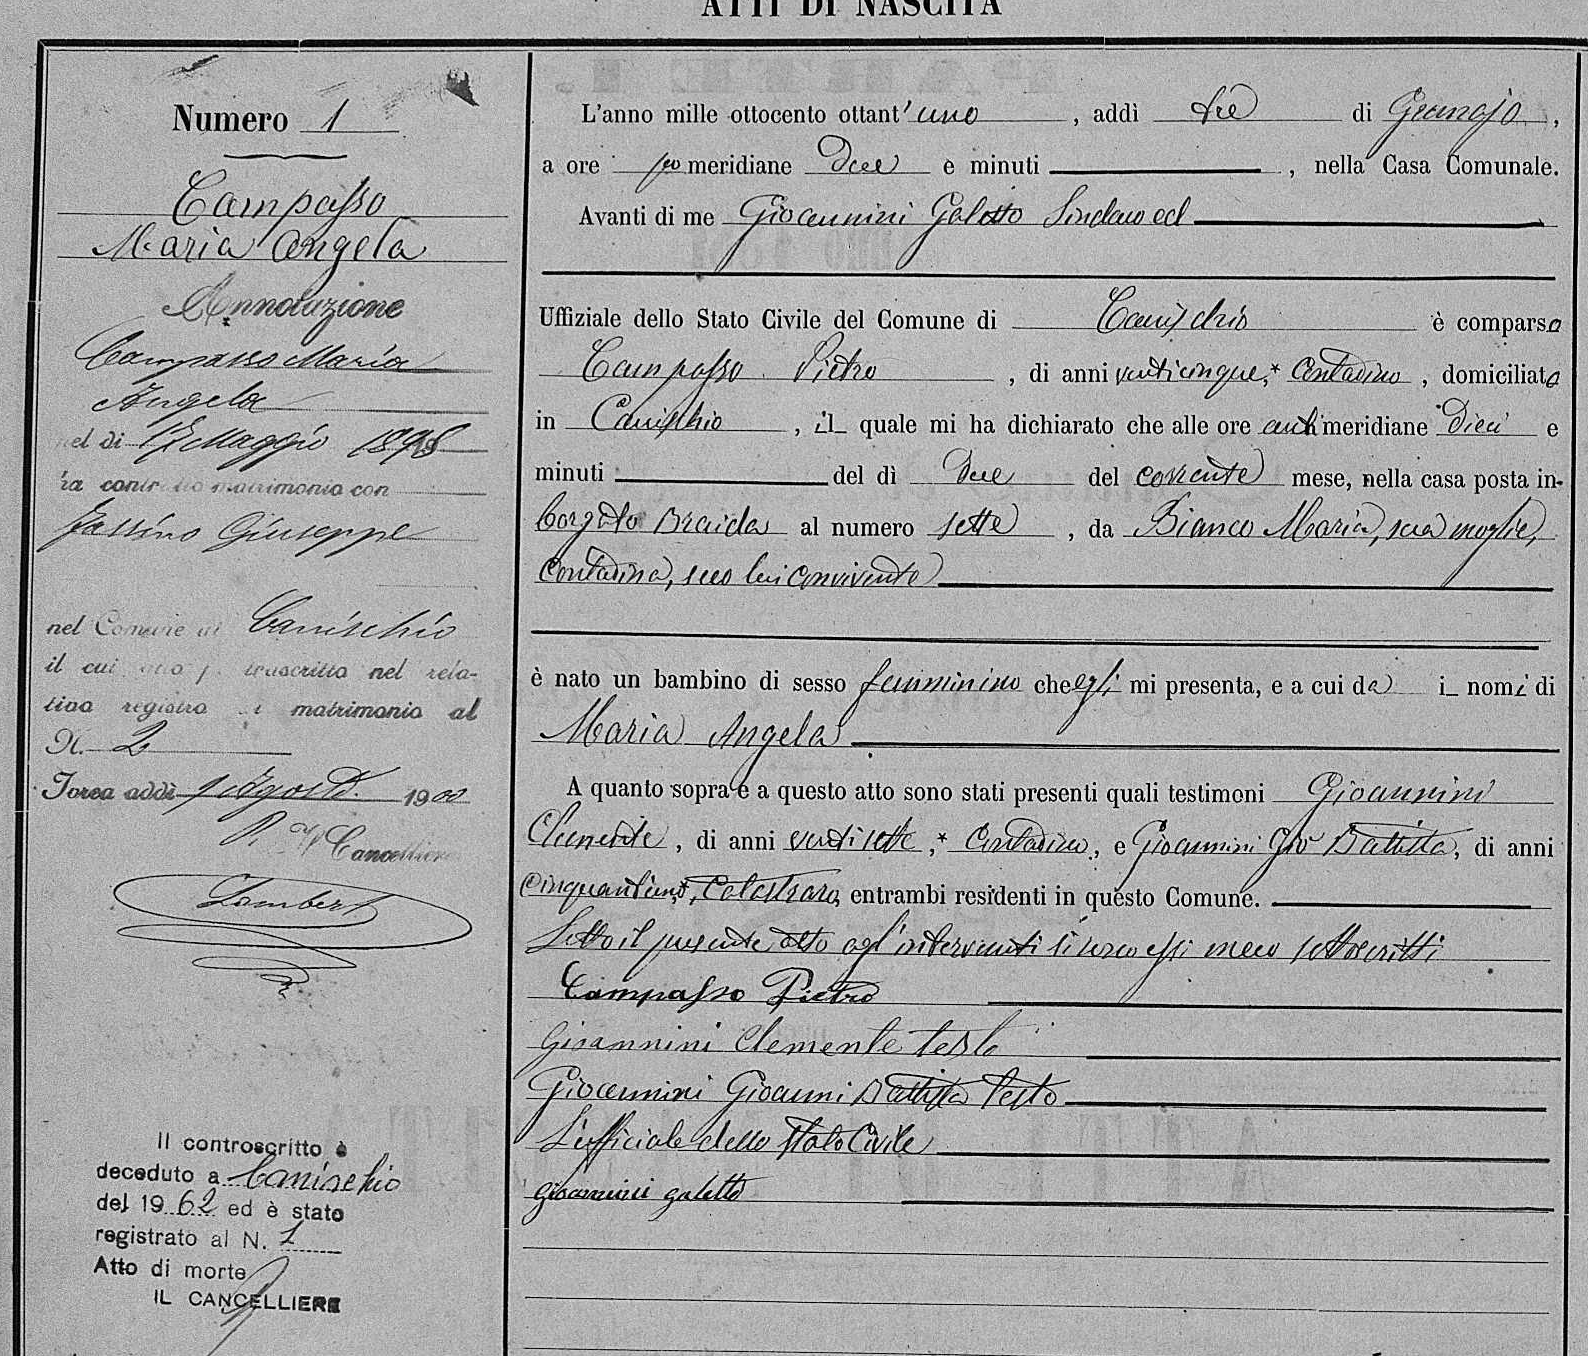 ATTI DI NASCITA
Numero 1
Campasso
Maria Angela
Annotazione
Campasso Maria
Angela
nel dì 17 Maggio 1898
ha contratto matrimonio con
Fassino Giuseppe
nel Comune di Canischio
il cui atto fu trascritto nel rela-
tivo registro di matrimonio al
N. 2
Ivrea addì 1 Agosto 1900
Il Cancelliere
Lambert
Il controscritto è
deceduto a Canischio
del 1962 ed è stato
registrato al N. 1
Atto di morte
IL CANCELLIERE
L'anno mille ottocento ottant'uno, addì tre di Gennajo,
a ore po meridiane due e minuti , nella Casa Comunale.
Avanti di me Gioannini Galetto Sindaco ed
Uffiziale dello Stato Civile del Comune di Canischio è comparso
Campasso Pietro, di anni venticinque,* Contadino, domiciliato
in Canischio, il quale mi ha dichiarato che alle ore anti meridiane Dieci e
minuti del dì Due del corrente mese, nella casa posta in
borgata Braida al numero sette, da Bianco Maria, sua moglie,
contadina, seco lui convivente
è nato un bambino di sesso femminino che egli mi presenta, e a cui dà i nomi di
Maria Angela
A quanto sopra e a questo atto sono stati presenti quali testimoni Gioannini
Clemente, di anni ventisette,* Contadino, e Gioannini Gio Battista, di anni
Cinquantuno, entrambi residenti in questo Comune.
Letto il presente atto agl'intervenuti si sono essi meco sottoscritti
Campasso Pietro
Gioannini Clemente testo
Gioannini Gioanni Battista Testo
L'ufficiale dello Stato Civile
Gioannini galetto